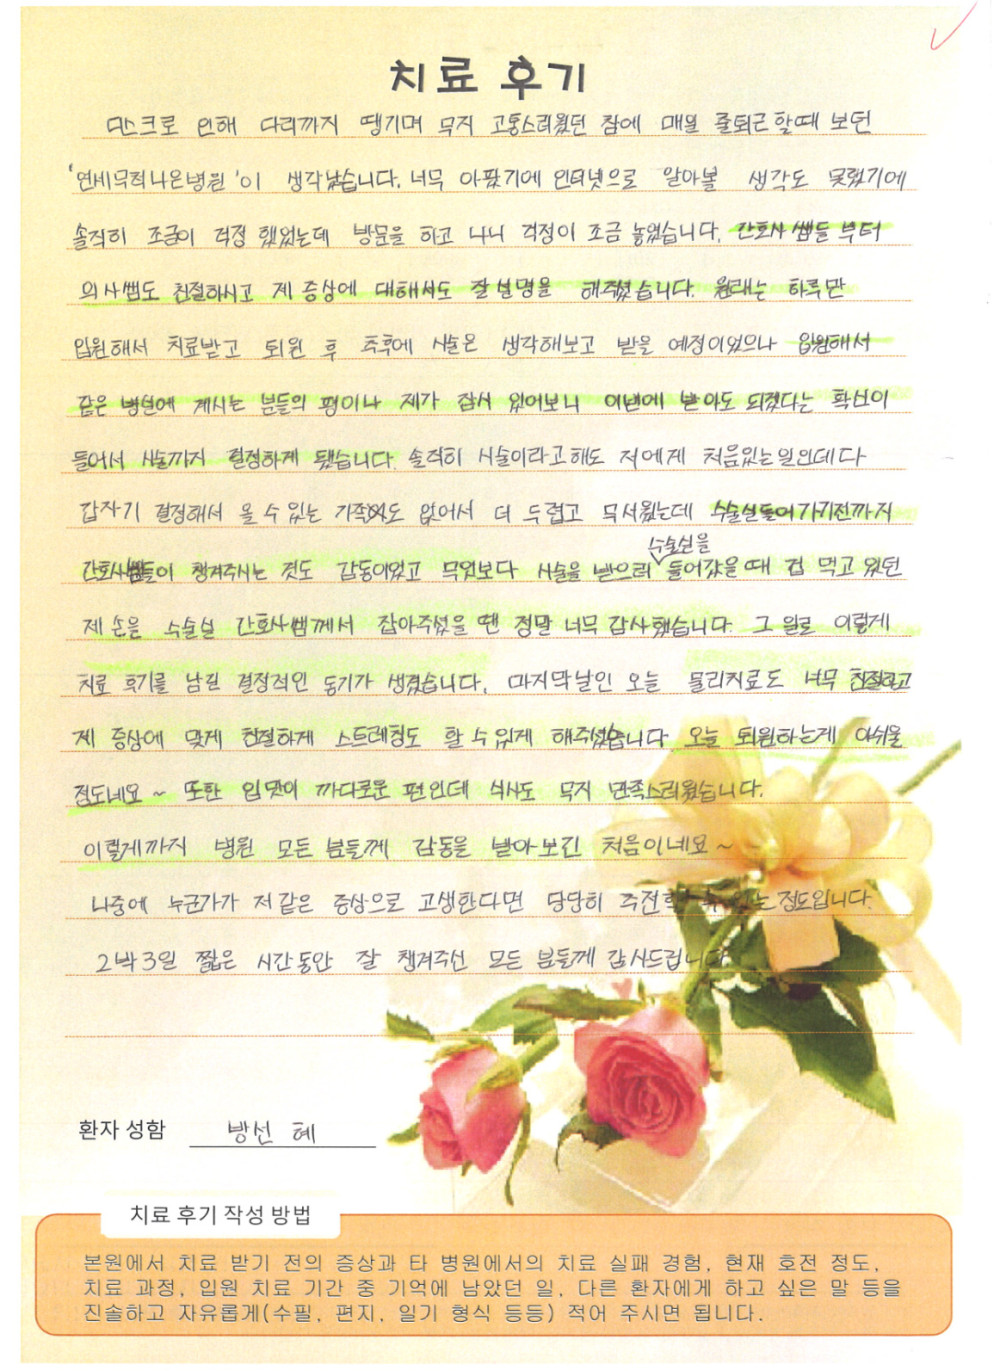 치료 후기
디스크로 인해 다리까지 땡기며 무지 고통스러웠던 참에 매일 출퇴근 할때 보던
'연세무척나은병원'이 생각났습니다. 너무 아팠기에 인터넷으로 알아볼 생각도 못했기에
솔직히 조금이 걱정 했었는데 방문을 하고 나니 걱정이 조금 놓였습니다. 간호사 쌤들 부터
의사쌤도 친절하시고 제 증상에 대해서도 잘 설명을 해주셨습니다. 원래는 하루만
입원해서 치료받고 퇴원 후 추후에 시술은 생각해보고 받을 예정이었으나 입원해서
같은 병실에 계시는 분들의 평이나 제가 잠시 있어보니 이번에 받아도 되겠다는 확신이
들어서 시술까지 결정하게 됐습니다. 솔직히 시술이라고해도 저에게 처음있는일인데다
갑자기 결정해서 올 수 있는 가족도 없어서 더 두렵고 무서웠는데 수술실들어가기전까지
간호사쌤들이 챙겨주시는 것도 감동이었고 무엇보다 시술을 받으러 수술실을 들어갔을 때 겁 먹고 있던
제 손을 수술실 간호사쌤께서 잡아주셨을 땐 정말 너무 감사했습니다. 그 일로 이렇게
치료 후기를 남길 결정적인 동기가 생겼습니다. 마지막날인 오늘 물리치료도 너무 친절하고
제 증상에 맞게 친절하게 스트레칭도 할 수 있게 해주셨습니다 오늘 퇴원하는게 아쉬울
정도네요 ~ 또한 입맛이 까다로운 편인데 식사도 무지 만족스러웠습니다.
이렇게까지 병원 모든 분들께 감동을 받아보긴 처음이네요 ~
나중에 누군가가 저같은 증상으로 고생한다면 당당히 추천할 수 있는 정도입니다.
2박3일 짧은 시간동안 잘 챙겨주신 모든 분들께 감사드립니다
환자 성함 방선혜
치료 후기 작성 방법
본원에서 치료 받기 전의 증상과 타 병원에서의 치료 실패 경험, 현재 호전 정도,
치료 과정, 입원 치료 기간 중 기억에 남았던 일, 다른 환자에게 하고 싶은 말 등을
진솔하고 자유롭게(수필, 편지, 일기 형식 등등) 적어 주시면 됩니다.